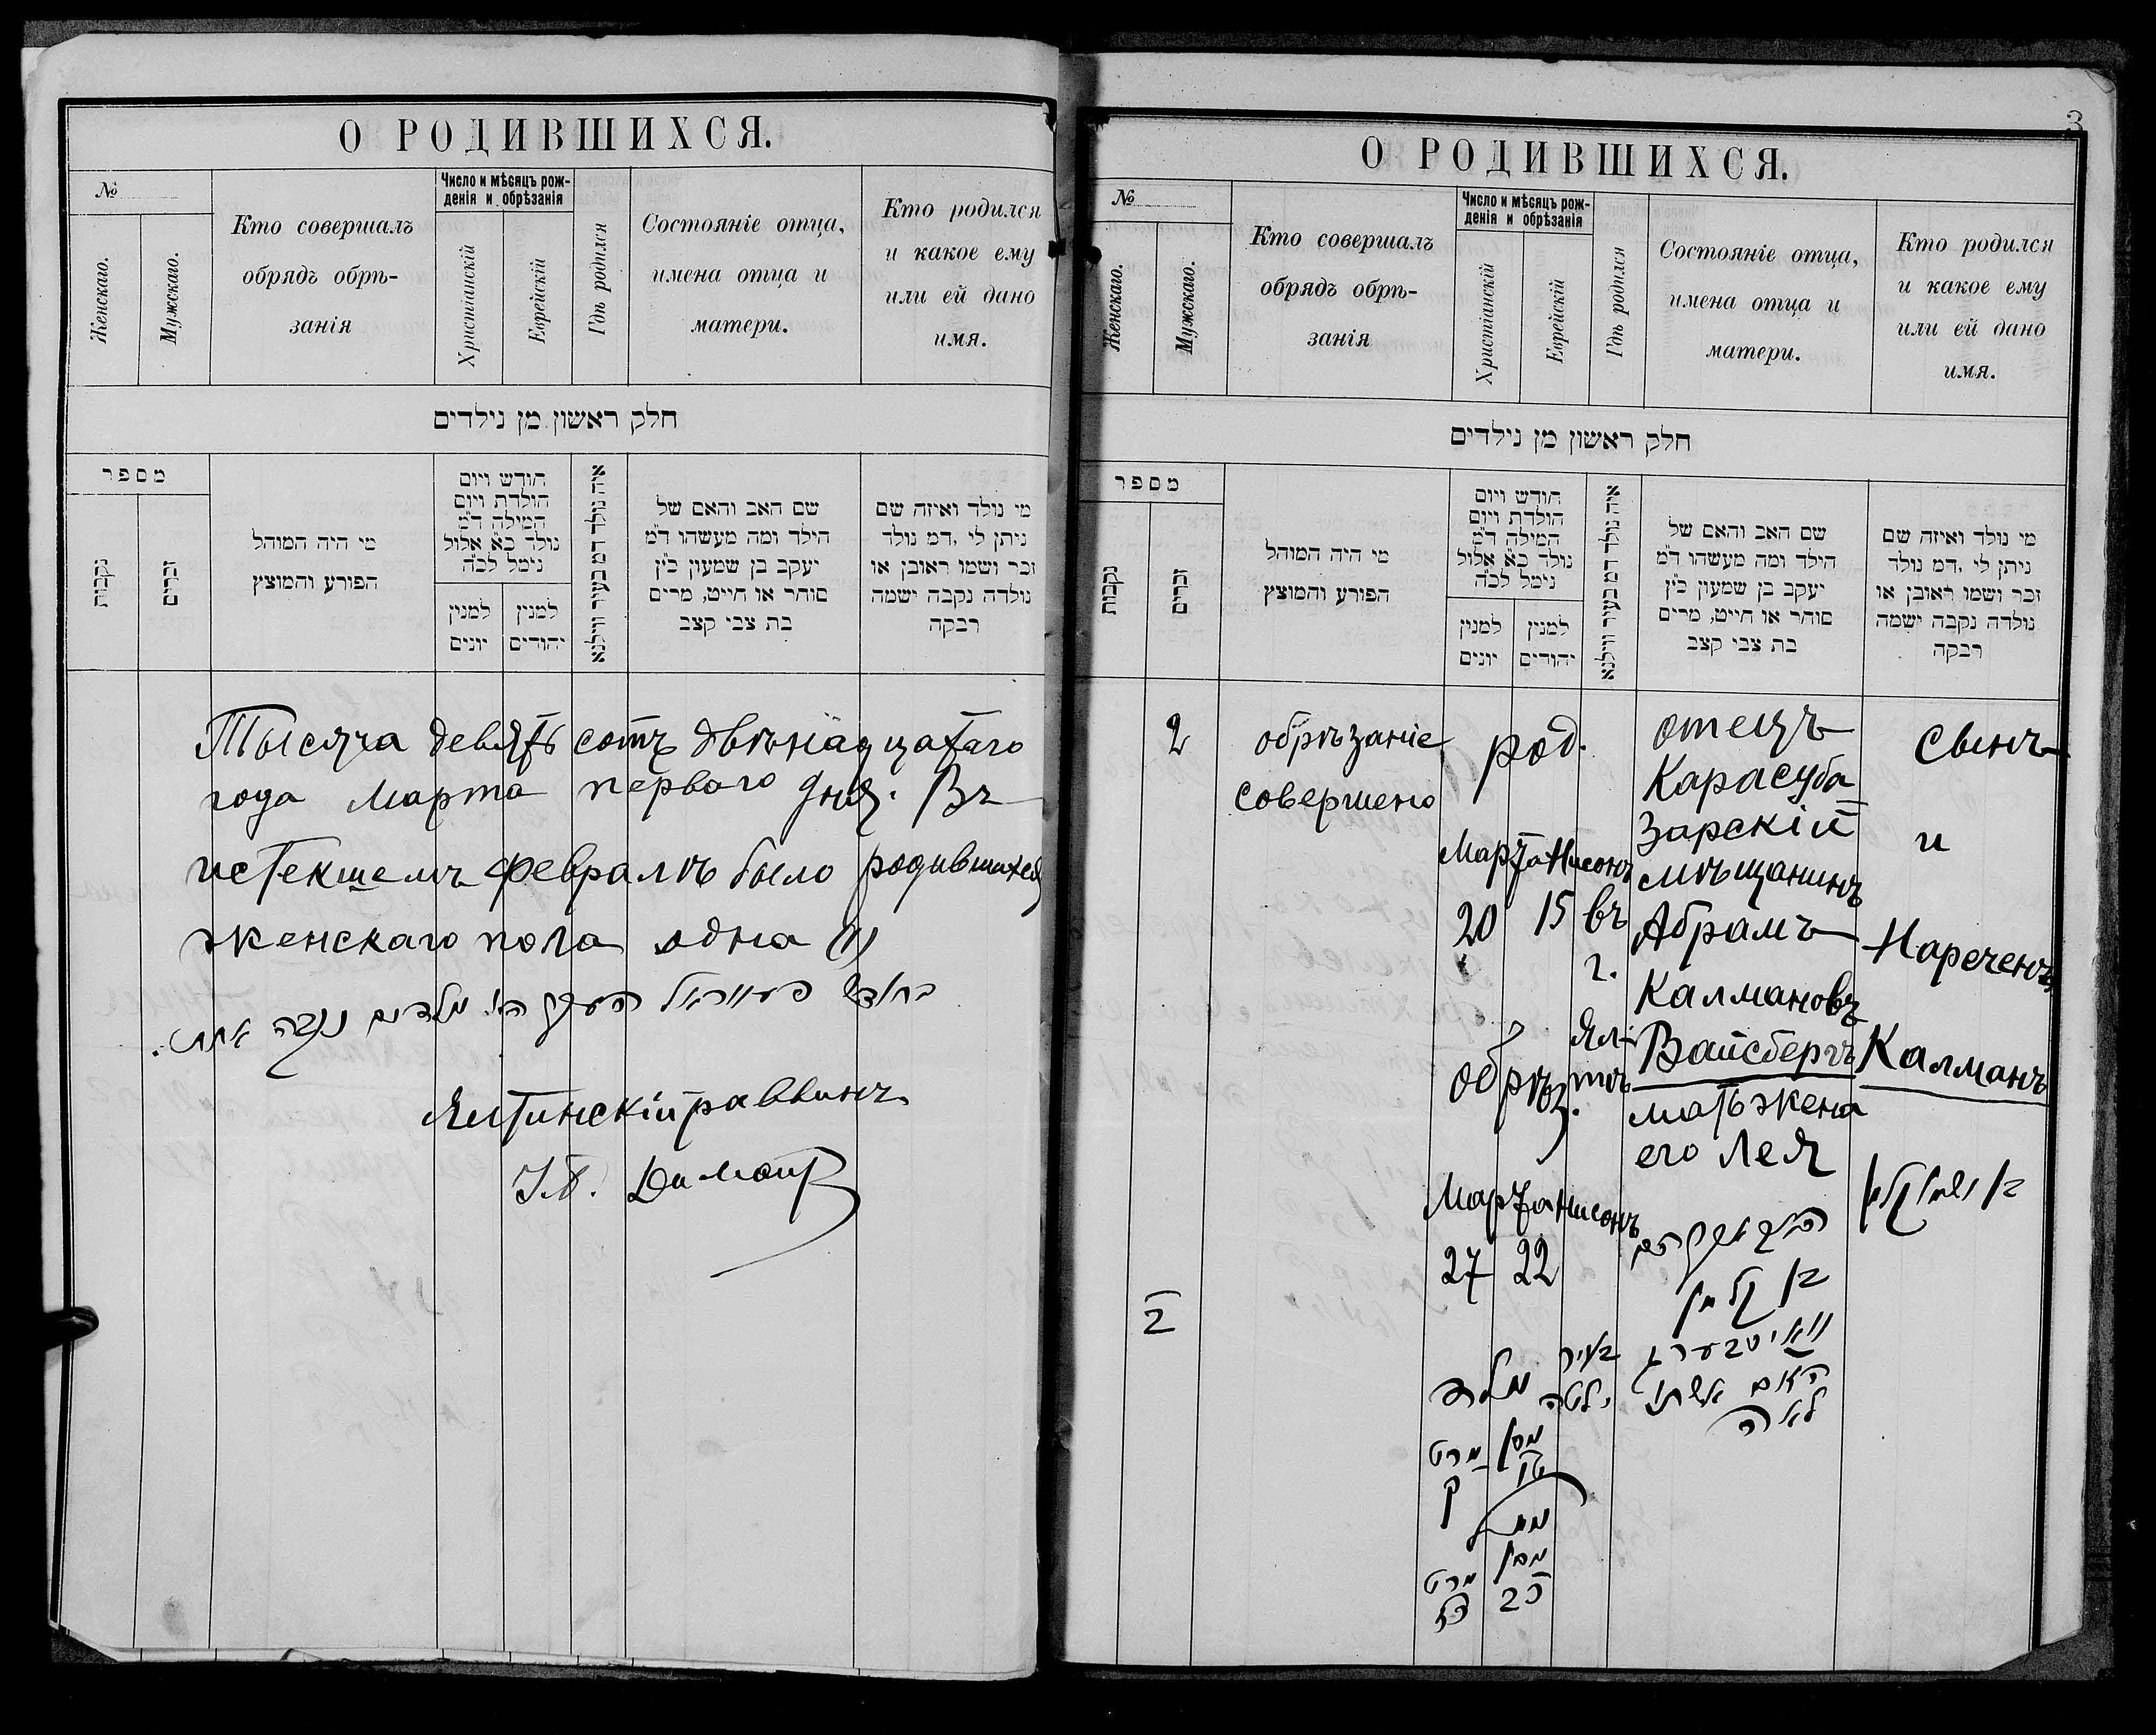 О РОДИВШИХСЯ.
№
Женскаго.
Мужскаго.
Кто совершалъ
обрядъ обрѣ-
занія
Число и мѣсяцъ рож-
денія и обрѣзанія
Христіанскій
Еврейскій
Гдѣ родился
Состояніе отца,
имена отца и
матери.
Кто родился
и какое ему
или ей дано
имя.
חלק ראשון מן נילדים
מספר
נקבות
זכרים
מי היה המוהל
הפורע והמוצץ
חודש ויום
הולדת ויום
המילה ד״מ
נולד כ״א אלול
נימל לכ״ה
למנין
יונים
למנין
יהודים
איה נולד דמ בעיר ווילנא
שם האב והאם של
הילד ומה מעשהו ד״מ
יעקב בן שמעון כ״ץ
סוחר או חייט, מרים
בת צבי קצב
מי נולד ואיזה שם
ניתן לי ,דמ נולד
זכר ושמו ראובן או
נולדה נקבה ישמה
רבקה
Тысяча девять сотъ двѣнадцатаго
года Марта перваго дня. Въ
истекшемъ февралѣ было родившихся
женскаго пола одна (1)
בחודש פעווראל העבר היו נולדים נקבה אחת.
Ялтинскій раввинъ
О РОДИВШИХСЯ.
3
№
Женскаго.
Мужскаго.
Кто совершалъ
обрядъ обрѣ-
занія
Число и мѣсяцъ рож-
денія и обрѣзанія
Христіанскій
Еврейскій
Гдѣ родился
Состояніе отца,
имена отца и
матери.
Кто родился
и какое ему
или ей дано
имя.
חלק ראשון מן נילדים
מספר
נקבות
זכרים
מי היה המוהל
הפורע והמוצץ
חודש ויום
הולדת ויום
המילה ד״מ
נולד כ״א אלול
נימל לכ״ה
למנין
יונים
למנין
יהודים
איה נולד דמ בעיר ווילנא
שם האב והאם של
הילד ומה מעשהו ד״מ
יעקב בן שמעון כ״ץ
סוחר או חייט, מרים
בת צבי קצב
מי נולד ואיזה שם
ניתן לי ,דמ נולד
זכר ושמו ראובן או
נולדה נקבה ישמה
רבקה
2
обрѣзаніе
совершено
род.
Марта
20
Нисонъ
15
обрѣз.
Марта
27
Нисонъ
22
въ
г.
Ял-
тѣ
отецъ
Карасуба
зарскій
мѣщанинъ
Абрамъ
Калмановъ
Вайсбергъ
мать жена
его Лея
сынъ
и
Нареченъ
Калманъ
בן ושמו קלמן
האב אברהם
בן קלמן
וואיסבערג
האם אשתו
לאה
נולד
בעיר
ילטה
מרט
כ
ניסן
טו
נימל
מרט
כז
ניסן
כב